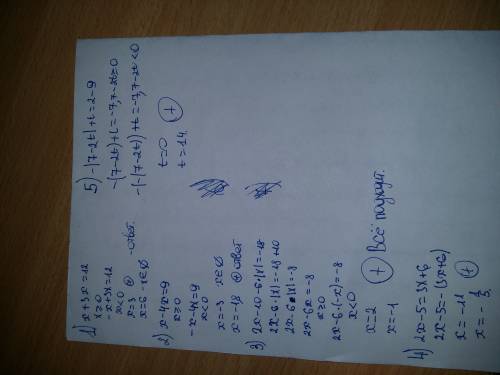 1) x+3x=12
x≥0
-x+3x=12
x<0
x=3 ⊕
x=6 - x∈∅ -ответ.
2) x-4x=9
x≥0
-x-4x=9
x<0
x=-3 x∈∅
x=-1,8 ⊕ ответ
3) 2x-10-6·|x|=-18
2x-6·|x|=-18+10
2x-6·|x|=-8
2x-6x=-8
x≥0
2x-6·(-x)=-8
x<0
x=2
x=-1 ⊕ Всё подходит.
4) 2x-5=3x+6
2x-5=-(3x+6)
x=-11 ⊕
x=-1/5
5) -|7-2t|+t=2-9
-(7-2t)+t=-7, 7-2t≥0
-(-(7-2t))+t=-7, 7-2t<0
t=0
t=14. ⊕